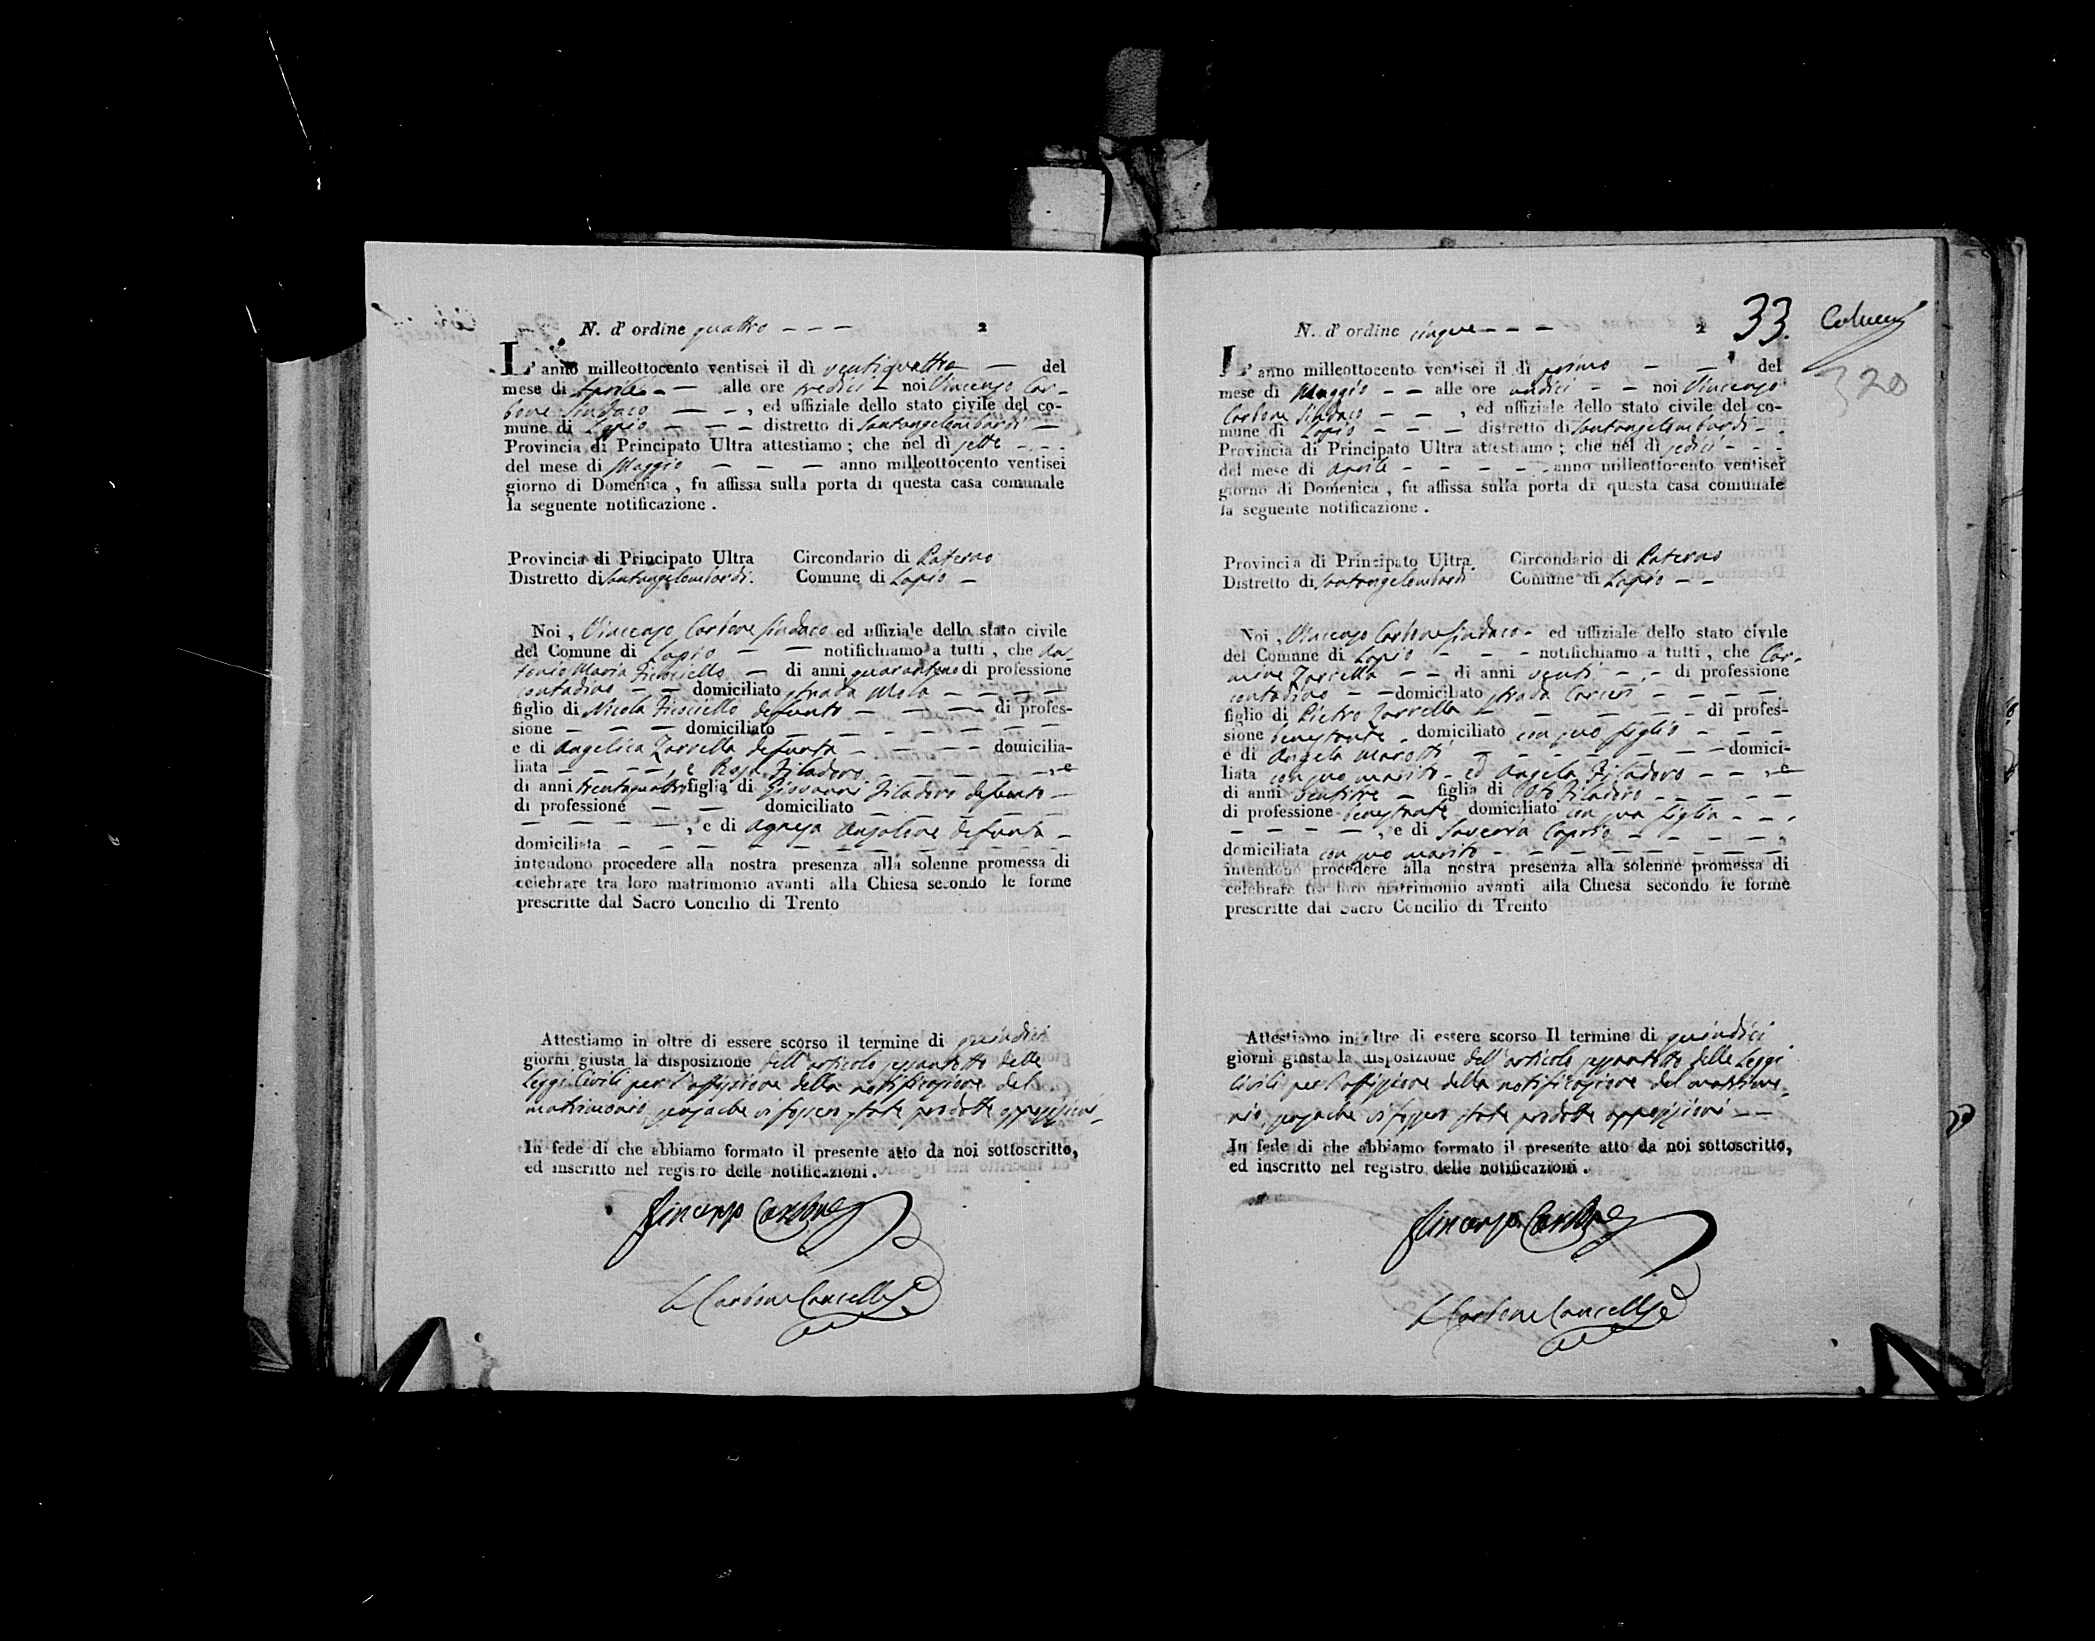 N. d' ordine quattro - - - 2
L' anno milleottocento ventisei il dì ventiquattro — del
mese di Aprile - — alle ore tredici - noi Vincenzo Car-
bone Sindaco — — , ed uffiziale dello stato civile del co-
mune di Lapio — — — distretto di Santangelombardi —
Provincia di Principato Ultra attestiamo ; che nel dì sette - - -
del mese di Maggio — — — anno milleottocento ventisei
giorno di Domenica , fu affissa sulla porta di questa casa comunale
la seguente notificazione .
Provincia di Principato Ultra Circondario di Paterno
Distretto di Santangelombardi. Comune di Lapio —
Noi , Vincenzo Carbone Sindaco ed uffiziale dello stato civile
del Comune di Lapio — — notifichiamo a tutti , che An-
tonio Maria — di anni di professione
contadino — — domiciliato strada Mola — — — —
figlio di Nicola defunto — — — di profes-
sione — — — domiciliato — — — — — —
e di Angelica Zarrella defunta — — — — domicilia-
liata — — — — , e Rosa Filadoro — — — — — , e
di anni trentaquattro figlia di Giovanni Filadoro defunto —
di professione — — domiciliato — — — —
— — — — , e di Agnesa Anzalone defunta —
domiciliata — — — — — — — — —
intendono procedere alla nostra presenza alla solenne promessa di
celebrare tra loro matrimonio avanti alla Chiesa secondo le forme
prescritte dal Sacro Concilio di Trento
Attestiamo in oltre di essere scorso il termine di quindici
giorni giusta la disposizione dell'articolo sessantotto delle
Leggi Civili per l'affissione della notificazione del
matrimonio, senzache vi fossero state prodotte opposizioni -
In fede di che abbiamo formato il presente atto da noi sottoscritto,
ed inscritto nel registro delle notificazioni .
Vincenzo Carbone
Carbone Cancelle
N. d' ordine cinque - - - 2 33. Colucci
320
L' anno milleottocento ventisei il dì primo — — del
mese di Maggio — — alle ore undici - — noi Vincenzo
Carbone Sindaco — — , ed uffiziale dello stato civile del co-
mune di Lapio — — — distretto di Santangelombardi - .
Provincia di Principato Ultra attestiamo ; che nel dì sedici - - -
del mese di Aprile - - - - - anno milleottocento ventisei
giorno di Domenica , fu affissa sulla porta di questa casa comunale
la seguente notificazione .
Provincia di Principato Ultra. Circondario di Paterno
Distretto di Santangelombardi Comune di Lapio — —
Noi , Vincenzo Carbone Sindaco - ed uffiziale dello stato civile
del Comune di Lapio - - - notifichiamo a tutti , che Car-
mine Zarrella — — di anni venti — - di professione
contadino — — domiciliato strada — — — —
figlio di Pietro Zarrella — — — — — di profes-
sione benestante - domiciliato con suo figlio - - - -
e di Angela Marotti — — — — — — domici-
liata con suo marito - ed Angela Filadoro — — , e
di anni ventitre — figlia di Filadoro - — — — —
di professione benestante domiciliato con sua figlia - - ,
— — — — , e di Saveria Caprio - — — — —
domiciliata con suo marito - — — — — — —
intendono procedere alla nostra presenza alla solenne promessa di
celebrare tra loro matrimonio avanti alla Chiesa secondo le forme
prescritte dal Sacro Concilio di Trento
Attestiamo in oltre di essere scorso Il termine di quindici
giorni giusta la disposizione dell'articolo sessantotto delle Leggi
Civili per l'affissione della notificazione del matrimo-
nio, senzache vi fossero state prodotte opposizioni — —
In fede di che abbiamo formato il presente atto da noi sottoscritto,
ed inscritto nel registro delle notificazioni .
Vincenzo Carbone
Carbone Cancelle